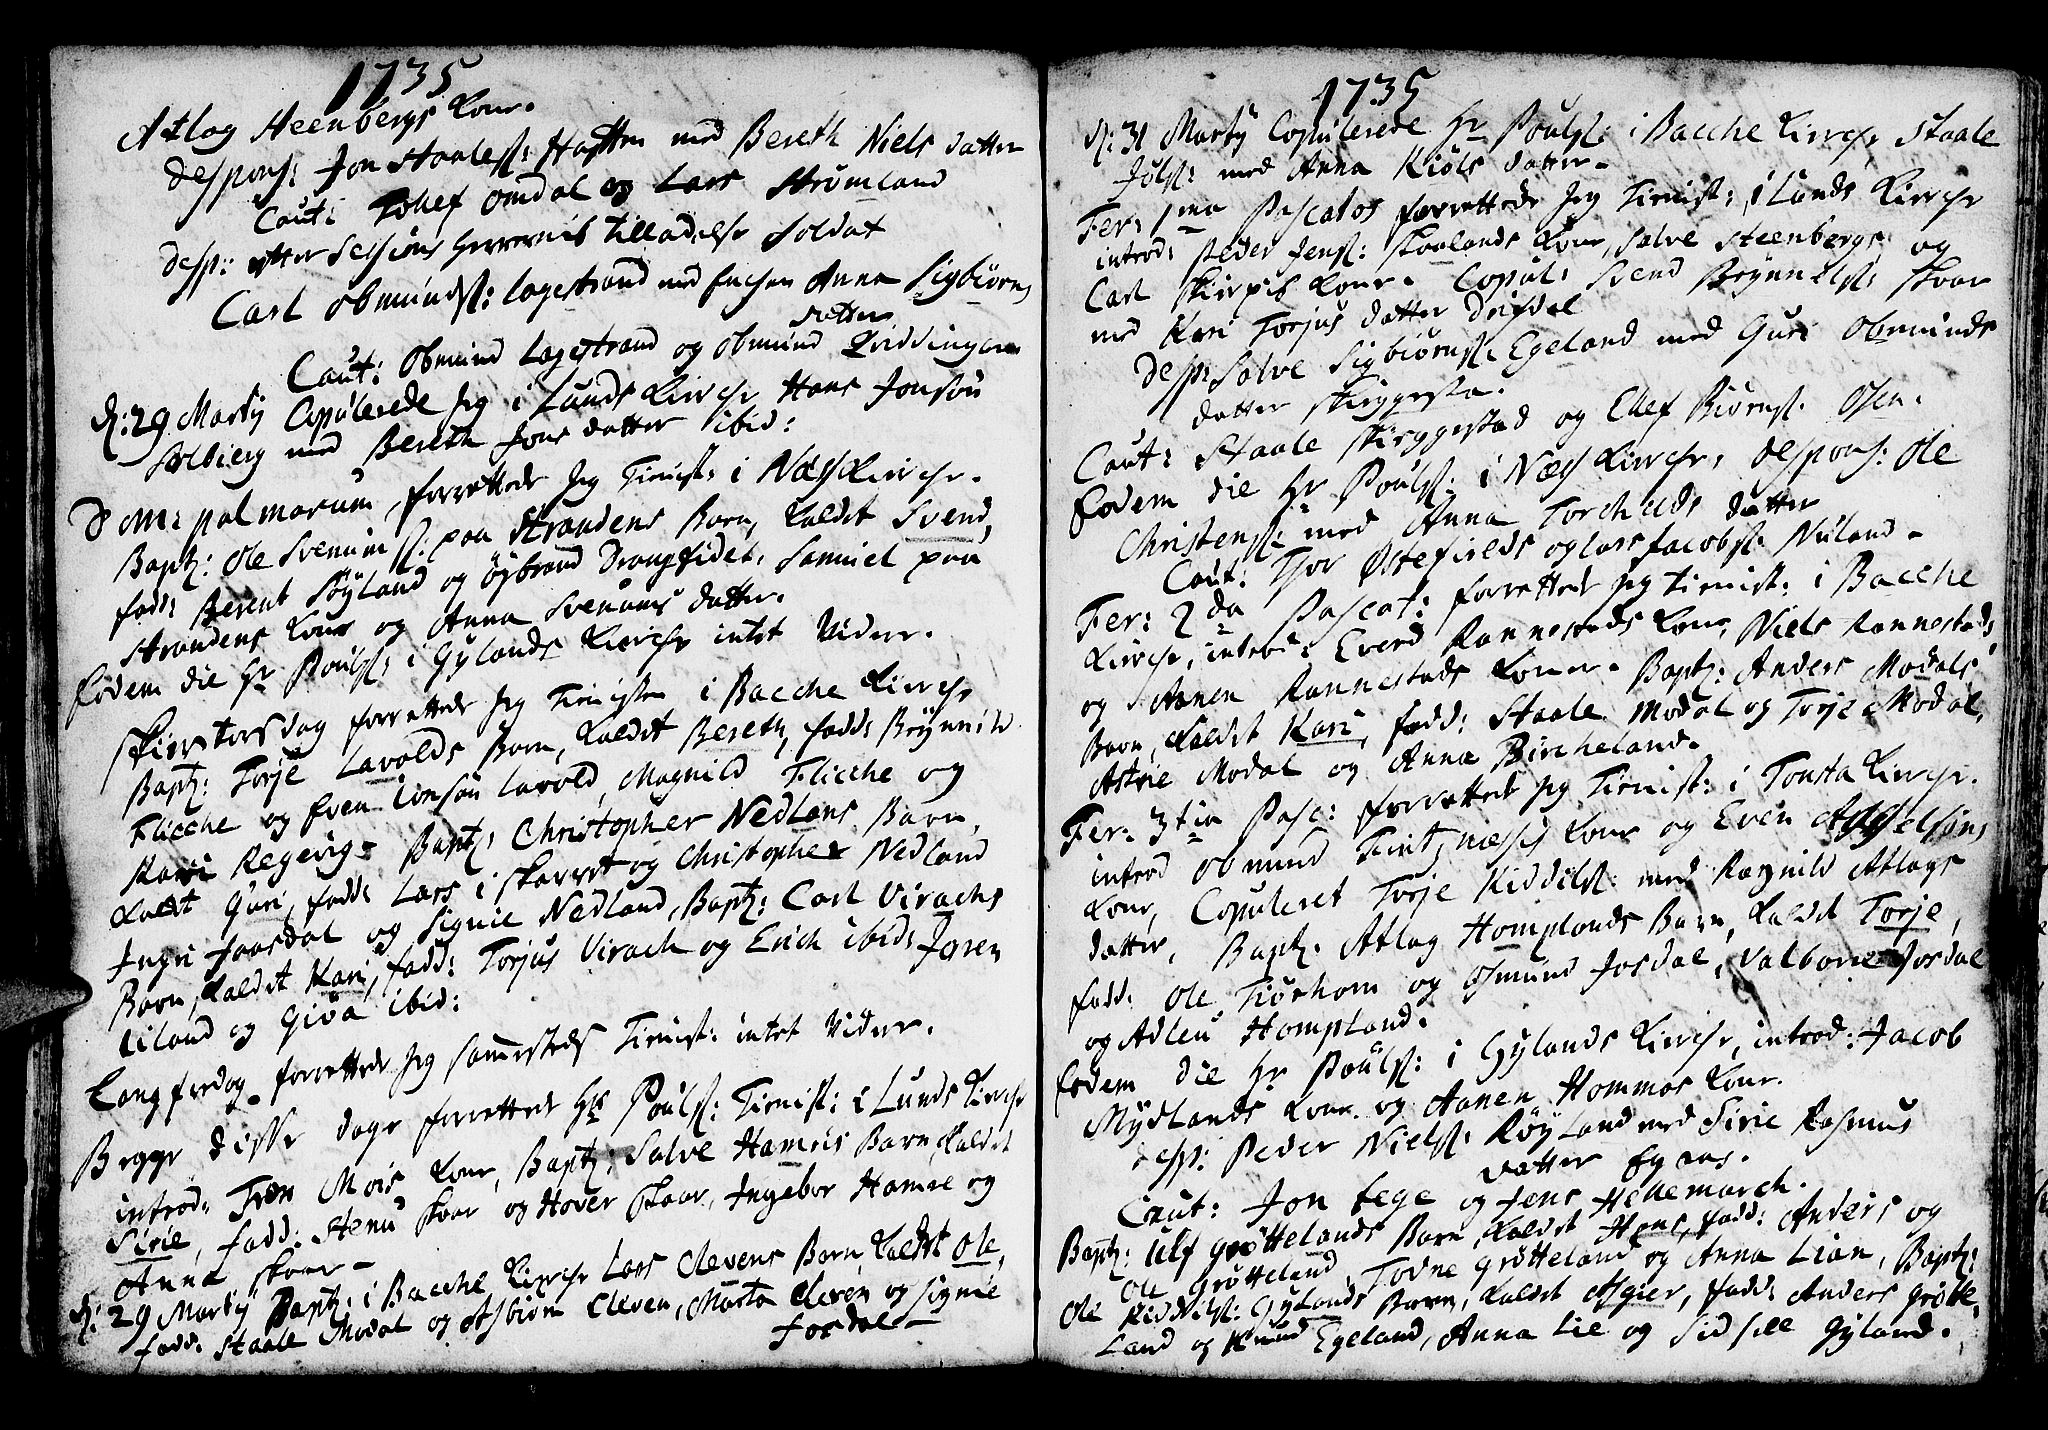 1735
Atlag Steenbergs Kone.
Despons: Jon Staaless: med Bereth Niels datter
Caut: Tollef Omdal og Lars Strømland
Desp: efter Sessions Herrernis tilladelse Soldat
Carl Obmundss: Lagestrand med Anna Sigbiørns
datter
Caut: Obmund Lagestrand og Obmund
D: 29 Martij Copulerede Jeg i Lunds Kirche Hans Jonsøn
Solbierg med Bereth Jons datter ibid:
Dom: palmarum, forrettede Jeg Tienist: i Næss Kirche.
Bapt: Ole Svenumss: paa Strandens Barn, kaldet Svend,
fadd: Berent Røyland og Øybrand Drangsfidet, Samuel paa
Strandens Kone og Anna Svenums datter.
Eodem die Hr Poulss: i Gylands Kirche intet Videre.
Skierstorsdag forrettede Jeg Tienisten i Bacche Kirche
Bapt: Torje Lavolds Barn, kaldet Bereth, fadd: Brynnild
Flicche og Even Lavold, Magnild Flicche og
Kari Regevig. Bapt: Christopher Nedlans Barn,
kaldt Guri, fadd: Lars i Skarret og Christopher Nedland
Ingri Josdal og Signie Nedland, Bapt: Carl Virachs
Barn, kaldet Kari, fadd: Torjus Virach og Erich ibid: Joren
Liland og Giva ibid:
Langfredag forrettede Jeg sammesteds Tienist: intet Videre.
Begge disse dage forrettede Hr Poulss: Tienist: i Lunds Kirche
introd: Trøn Mois Kone, Bapt: Salve Hamris Barn kaldet
Sirie, fadd: Stenu Skaar og Hover Skaar, Ingebor Hamre og
Anna Skaar.
D: 29 Martij Bapt: i Bacche Kirche Lars Clevens Barn, kaldet Ole,
fadd: Staale Modal og Asbiørn Cleven, Marta Cleven og Signie
Josdal
1735
D: 31 Martij Copulerede Hr Poulss: i Bacche Kirche Staale
med Anna Kiøls datter.
Fer: 1ma Pascatos forrettede Jeg Tienist: i Lunds Kirche
introd: Peder Jenss: Skaalands Kone, Salve Steenbergs og
Carl Skierpis Kone. Copul: Svend Brynnelss: Skaar
med Kari Torjus datter Drifdal
Desp: Salve Sigbiørnss: Egeland med Guri Obmunds
datter Skieggesta.
Caut: Staale Skieggestad og Ellef Biørnss: Osen.
Eodem die Hr Poulss: i Næss Kirche, Despons: Ole
Christenss: med Anna Torchilds datter
Caut: Thor Østefields og Lars Jacobss: Nuland.
Fer: 2da Pascat: forrettede Jeg tienist: i Bacche
Kirche, introd: Everd Rannestads Kone, Niels Rannestads
og Aanen Rannestads Koner. Bapt: Anders Modals
Barn, kaldet Kari, fadd: Staale Modal og Torje Modal,
Astrie Modal og Anna Bircheland.
Fer: 3tia Pasc: forrettede Jeg Tienist: i Tonsta Kirche.
introd Obmund Kone og Even
Kone, Copuleret Torje Kiddilss: med Ragnild Atlags
datter, Bapt: Atlag Homplands Barn, kaldet Torje,
fadd: Ole Tiørhom og Osmund Josdal, Valborie Josdal
og Adleu Hompland.
Eodem die Hr Poulss: i Gylands Kirche, introd: Jacob
Mydlands Kone og Aanen Hommas Kone.
desp: Peder Nielss: Røyland med Sirie Rasmus
datter Egans.
Caut: Jon Eege og Jens Hellemarch.
Bapt: Ulf Grøttelands Barn, kaldet Hans, fadd: Anders og
Ole Grøtteland, Todne Grøtteland og Anna Lian, Bapt:
Ole Kiddilss: Gylands Barn, kaldet Asgier, fadd: Anders Grøtte
Land og Knud Egeland, Anna Lie og Sidsele Gyland.